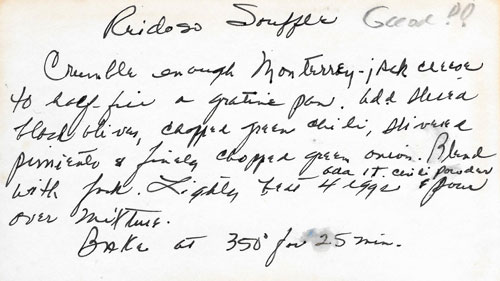 Reidoso Souffle Good!!
Crumble enough Monterrey-jack cheese
to half fill a gratine pan. Add sliced
black olives, chopped green chili, slivered
pimiento & finely chopped green onion. Blend
with fork. Lightly beat 4 eggs & pour
add 1 T. chili powder
over mixture.
Bake at 350° for 25 min.